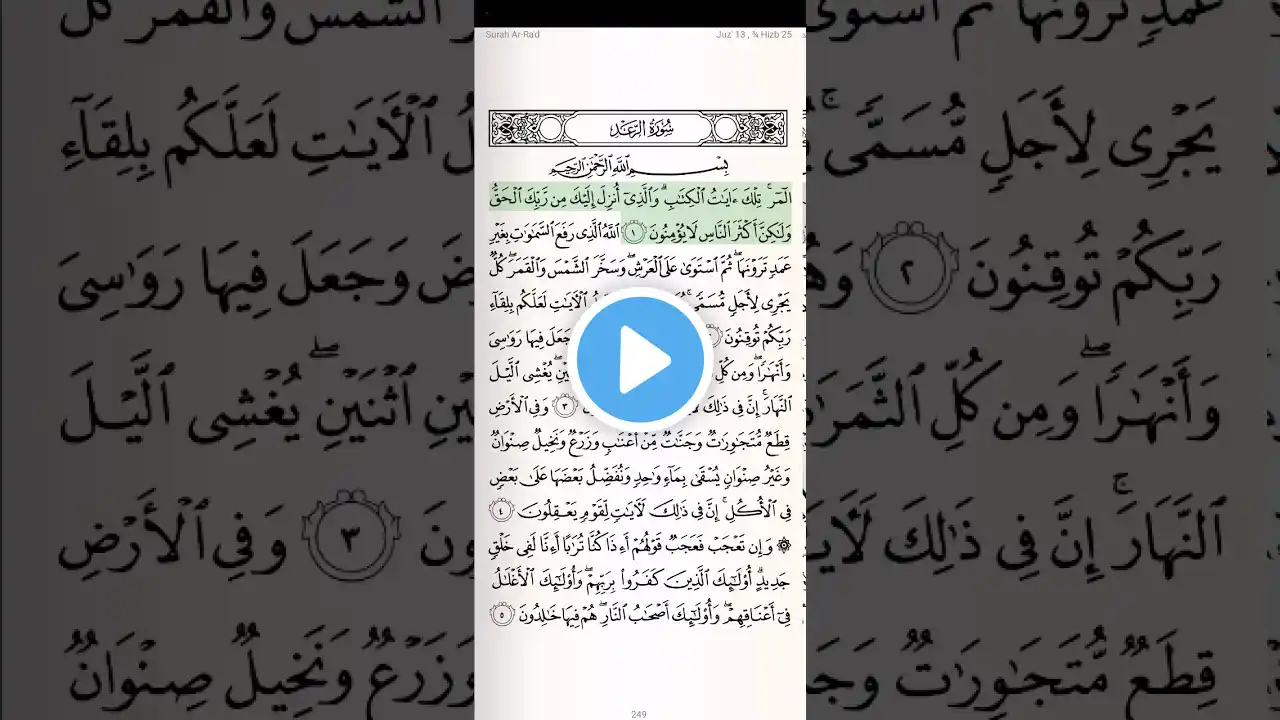 Surah Ar-Ra'd
Juz' 13 , ¾ Hizb 25
سُورَةُ الرَّعْدِ
بِسْمِ ٱللَّهِ ٱلرَّحْمَٰنِ ٱلرَّحِيمِ
الٓمٓرۚ تِلْكَ ءَايَٰتُ ٱلْكِتَٰبِۗ وَٱلَّذِىٓ أُنزِلَ إِلَيْكَ مِن رَّبِّكَ ٱلْحَقُّ
وَلَٰكِنَّ أَكْثَرَ ٱلنَّاسِ لَا يُؤْمِنُونَ ١ ٱللَّهُ ٱلَّذِى رَفَعَ ٱلسَّمَٰوَٰتِ بِغَيْرِ
عَمَدٍ تَرَوْنَهَاۖ ثُمَّ ٱسْتَوَىٰ عَلَى ٱلْعَرْشِۖ وَسَخَّرَ ٱلشَّمْسَ وَٱلْقَمَرَۖ كُلٌّ
يَجْرِى لِأَجَلٍ مُّسَمًّىۚ ٱلْءَايَٰتِ لَعَلَّكُم بِلِقَآءِ
رَبِّكُمْ تُوقِنُونَ ٢ وَجَعَلَ فِيهَا رَوَٰسِىَ
وَأَنْهَٰرًاۖ وَمِن كُلِّ يُغْشِى ٱلَّيْلَ
ٱلنَّهَارَۚ إِنَّ فِى ذَٰلِكَ ٣ وَفِى ٱلْأَرْضِ
قِطَعٌ مُّتَجَٰوِرَٰتٌ وَجَنَّٰتٌ مِّنْ أَعْنَٰبٍ وَزَرْعٌ وَنَخِيلٌ صِنْوَانٌ
وَغَيْرُ صِنْوَانٍ يُسْقَىٰ بِمَآءٍ وَٰحِدٍ وَنُفَضِّلُ بَعْضَهَا عَلَىٰ بَعْضٍ
فِى ٱلْأُكُلِۚ إِنَّ فِى ذَٰلِكَ لَءَايَٰتٍ لِّقَوْمٍ يَعْقِلُونَ ٤
۞ وَإِن تَعْجَبْ فَعَجَبٌ قَوْلُهُمْ أَءِذَا كُنَّا تُرَٰبًا أَءِنَّا لَفِى خَلْقٍ
جَدِيدٍۗ أُو۟لَٰٓئِكَ ٱلَّذِينَ كَفَرُوا۟ بِرَبِّهِمْۖ وَأُو۟لَٰٓئِكَ ٱلْأَغْلَٰلُ
فِىٓ أَعْنَاقِهِمْۖ وَأُو۟لَٰٓئِكَ أَصْحَٰبُ ٱلنَّارِۖ هُمْ فِيهَا خَٰلِدُونَ ٥
249